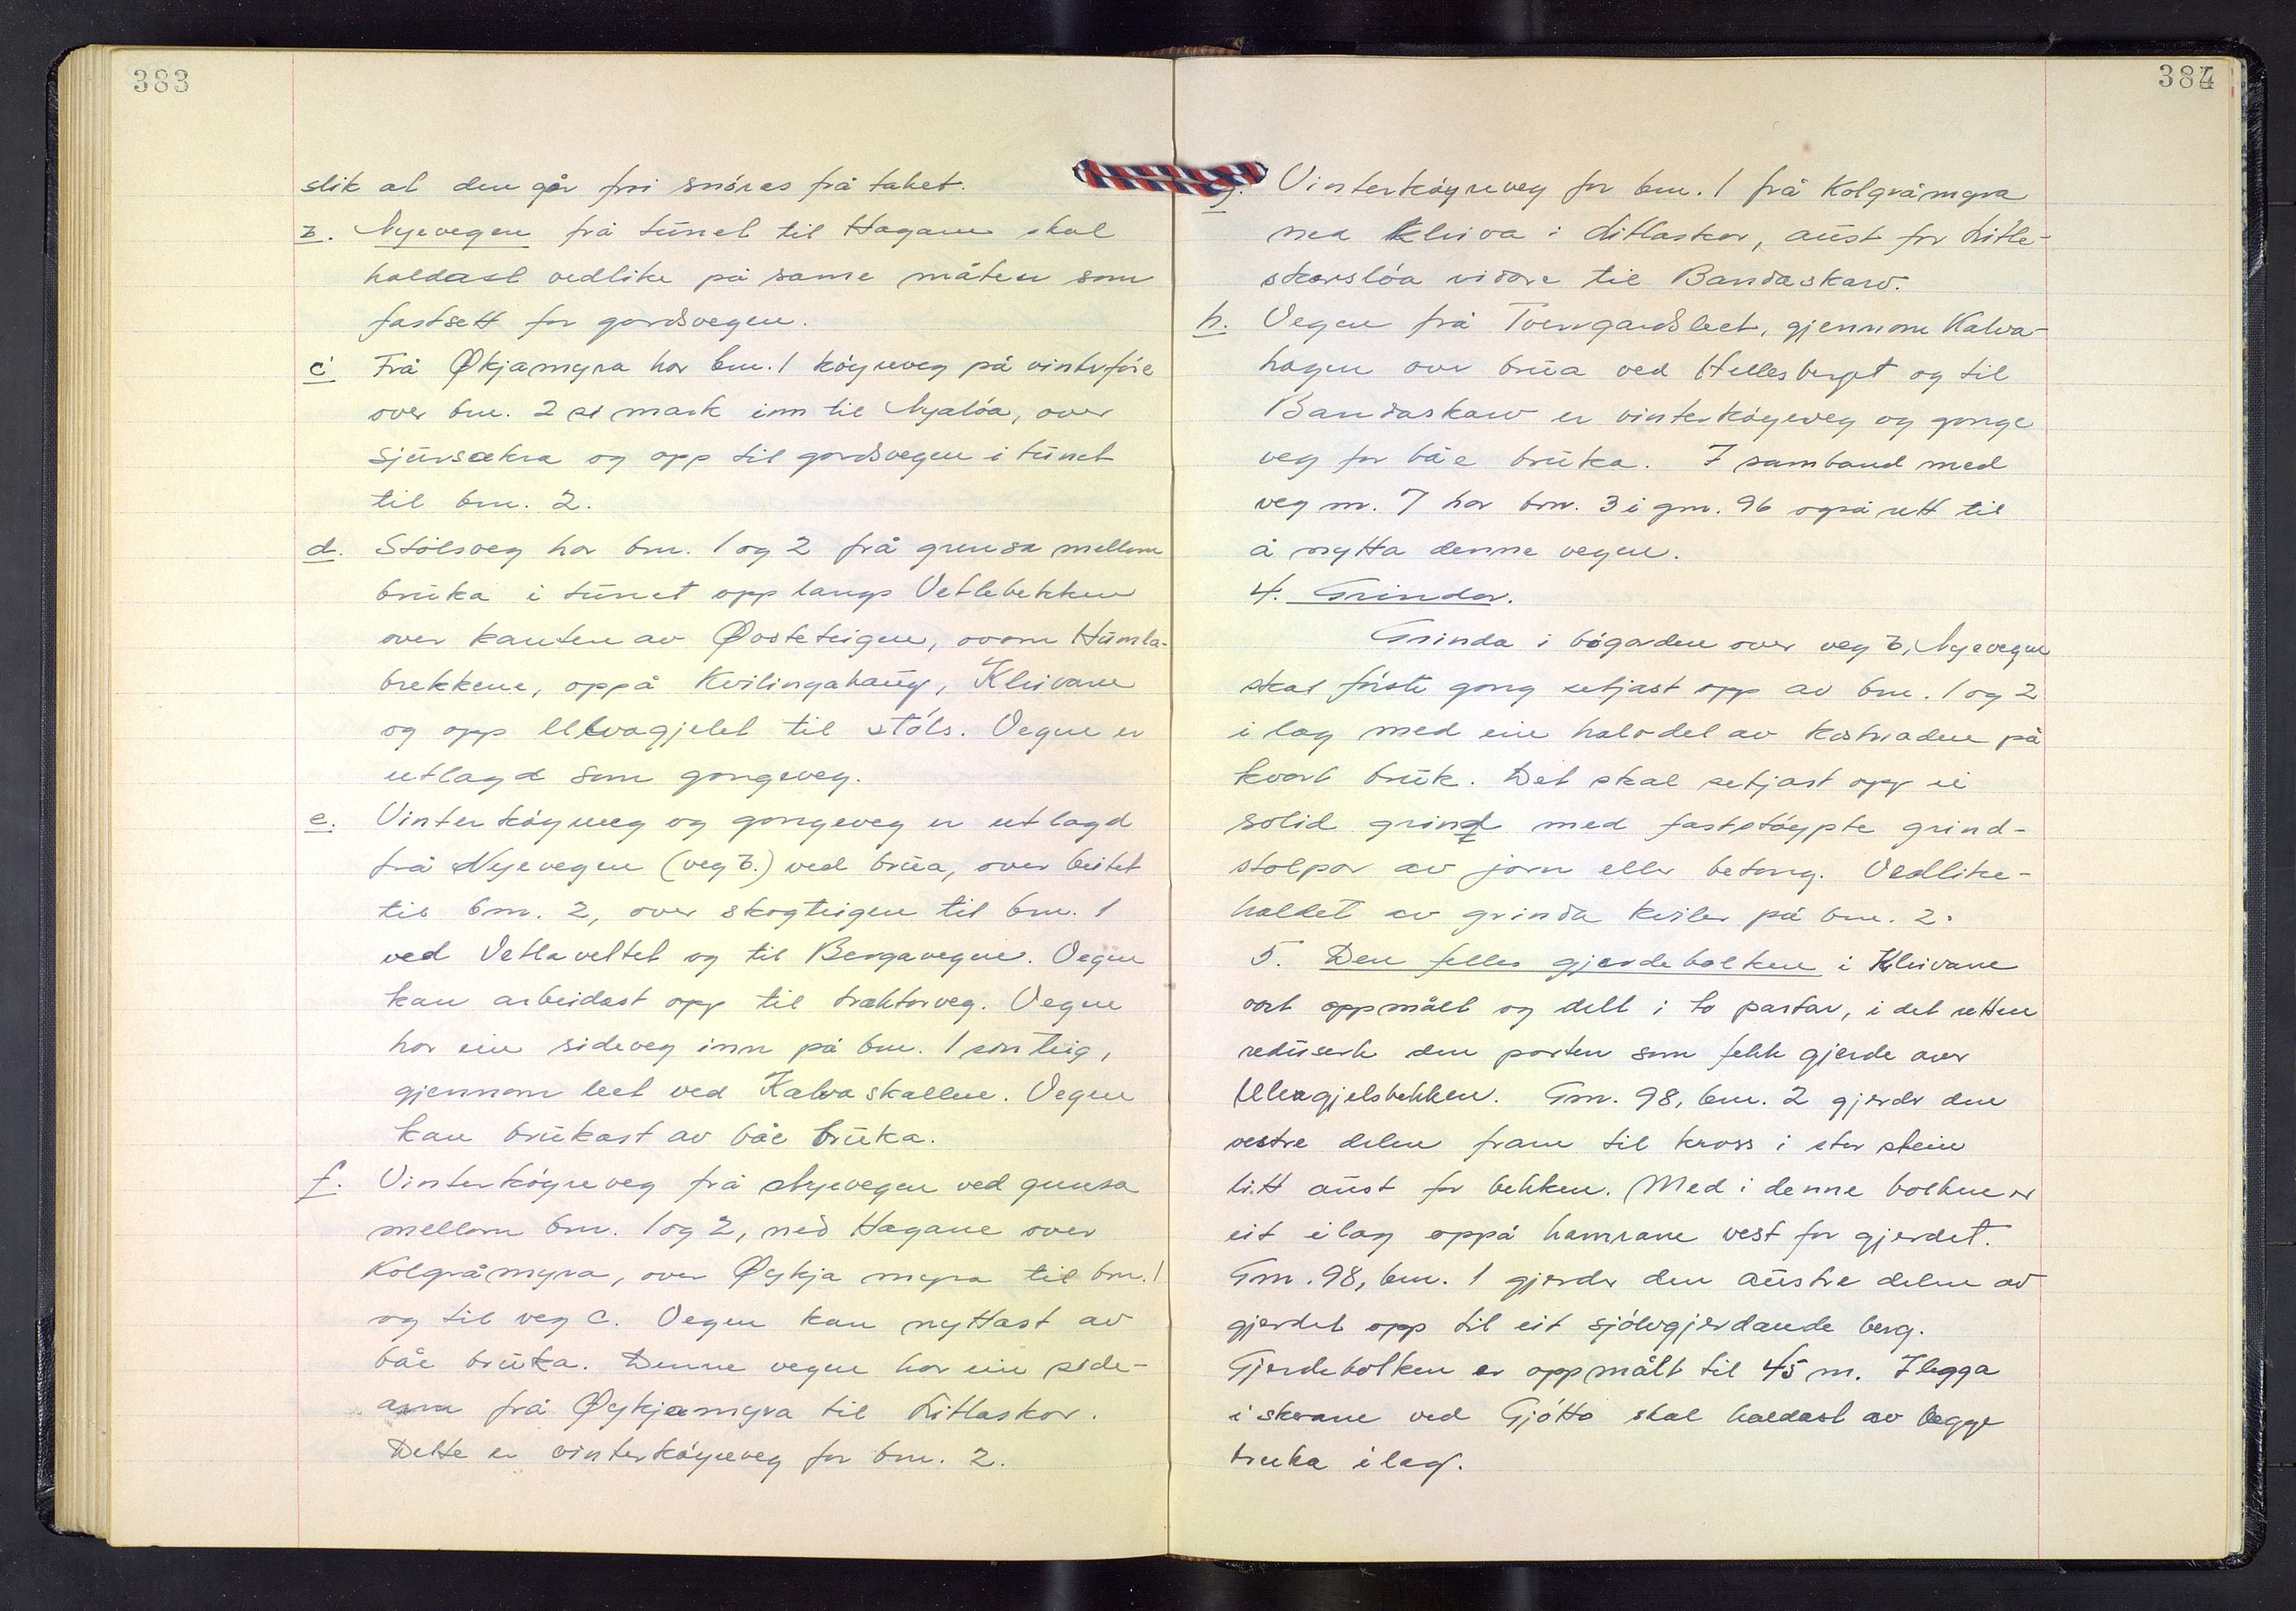 383
slik at den går fri snóras frå taket.
b. Nyevegen frå tunet til Hagane skal
haldast vedlike på same måten som
fastsett for gardsvegen.
c Frå Økjamyra har bnr. 1 köyreveg på vinterföre
over bnr. 2 si mark inn til Nyalóa, over
Sjursækra og opp til gardsvegen i tunet
til bnr. 2.
d. Stölsveg har bnr. 1 og 2 frå grensa mellom
bruka i tunet opp langs Vetlebekken
over kanten av Øvsteteigen, ovom Humla-
brekkene, oppå Kvilingahaug, Kleivane
og opp Ulvagjelet til stöls. Vegen er
utlagd som gangeveg.
e. Vinterköyreveg og gongeveg er utlagd
frå Nyevegen (veg b.) ved brua, over beitet
til bnr. 2, over skogteigen til bnr. 1
ved Vetlaveltet og til Bergavegen. Vegen
kan arbeidast opp til traktorveg. Vegen
har ein sideveg inn på bnr. 1 sin teig,
gjennom leet ved Kalvaskallen. Vegen
kan brukast av båe bruka.
f. Vinterköyreveg frå Nyevegen ved grensa
mellom bnr. 1 og 2, ned Hagane over
Kolgråmyra, over Øykja myra til bnr. 1
og til veg c. Vegen kan nyttast av
båe bruka. Denne vegen har ein side-
arm frå Øykjamyra til Litlaskor.
Dette er vinterköyreveg for bnr. 2.
384
g. Vinterköyreveg for bnr. 1 frå Kolgråmyra
ned Kleiva i Litlaskor, aust for Litle-
skorslóa vidare til Bandaskarv.
h. Vegen frå Tverrgardsleet, gjennom Kalva-
hagen over brua ved Hellesberget og til
Bandaskarv er vinterköyreveg og gonge
veg for båe bruka. I samband med
veg nr. 7 har bnr. 3 i gnr. 96 også rett til
å nytta denne vegen.
4. Grindar.
Grinda i bögarden over veg b, Nyevegen
skal förste gong setjast opp av bnr. 1 og 2
i lag med ein halvdel av kostnaden på
kvart bruk. Det skal setjast opp ei
solid grind med faststöypte grind-
stolpar av jarn eller betong. Vedlike-
haldet av grinda kviler på bnr. 2.
5. Den felles gjerdebolken i Kleivane
vart oppmålt og delt i to partar, i det retten
reduserte den parten som fekk gjerde over
Ulvagjelsbekken. Gnr. 98, bnr. 2 gjerder den
vestre delen fram til kross i stor stein
litt aust for bekken. Med i denne bolken er
eit ilag oppå hamrane vest for gjerdet.
Gnr. 98, bnr. 1 gjerder den austre delen av
gjerdet opp til eit sjölvgjerdande berg.
Gjerdebolken er oppmålt til 45 m. Ilegga
i skorane ved Gjótto skal haldast av begge
bruka ilag.